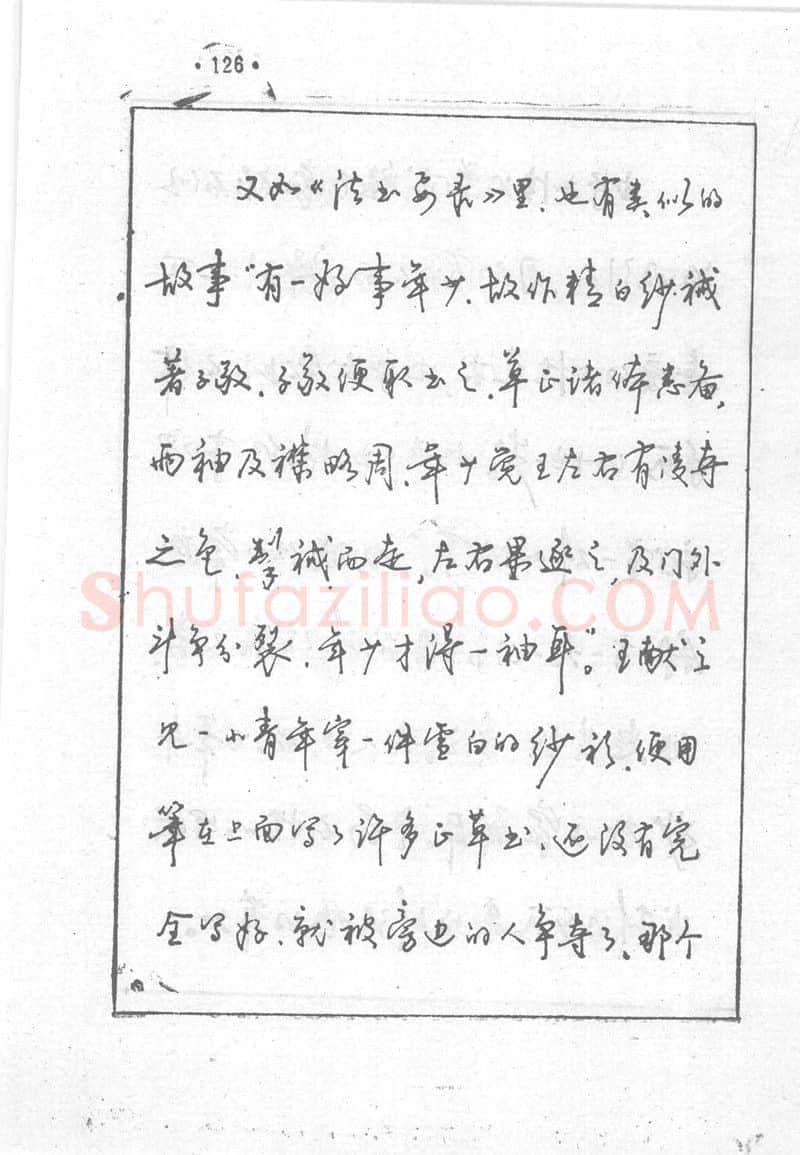 ·126·
又如《法书要录》里、也有类似的
故事“有一好事年少、故作精白纱裓
著子敬、子敬便取书之、草正诸体悉备，
两袖及褾略周、年少觉王左右有凌夺
之色、掣裓而走，左右果逐之，及门外
斗争分裂、年少才得一袖耳”。王献之
见一小青年穿一件雪白的纱衫、便用
笔在上面写了许多正草书、还没有完
全写好、就被旁边的人争夺了、那个
Shufaziliao.COM